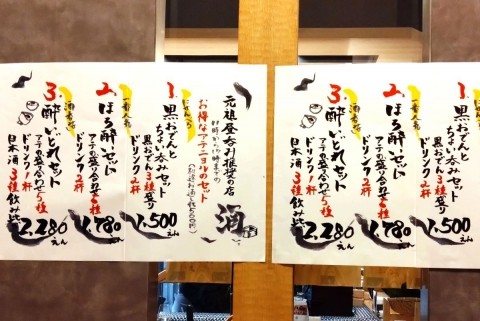 元祖昼呑み推奨の店
お得なアテニョルのセット
酒
じゃんべら
1. 黒おでんと
ちょい呑みセット
黒おでん3種盛り
ドリンク2杯
1,500えん
一番人気
2. ほろ酔いセット
アテの盛り合わせ
ドリンク2杯
1,780
酒豪
3. 酔いどれセット
アテの盛り合わせ5種
ドリンク1杯
日本酒3種飲み比べ
2,280えん
1. 黒おでんと
ちょい呑みセット
黒おでん3種盛り
ドリンク2杯
1,500えん
一番人気
2. ほろ酔いセット
アテの盛り合わせ
ドリンク2杯
1,780
3. 酔いどれセット
アテの盛り合わせ5種
ドリンク1杯
日本酒3種飲み比べ
2,280えん